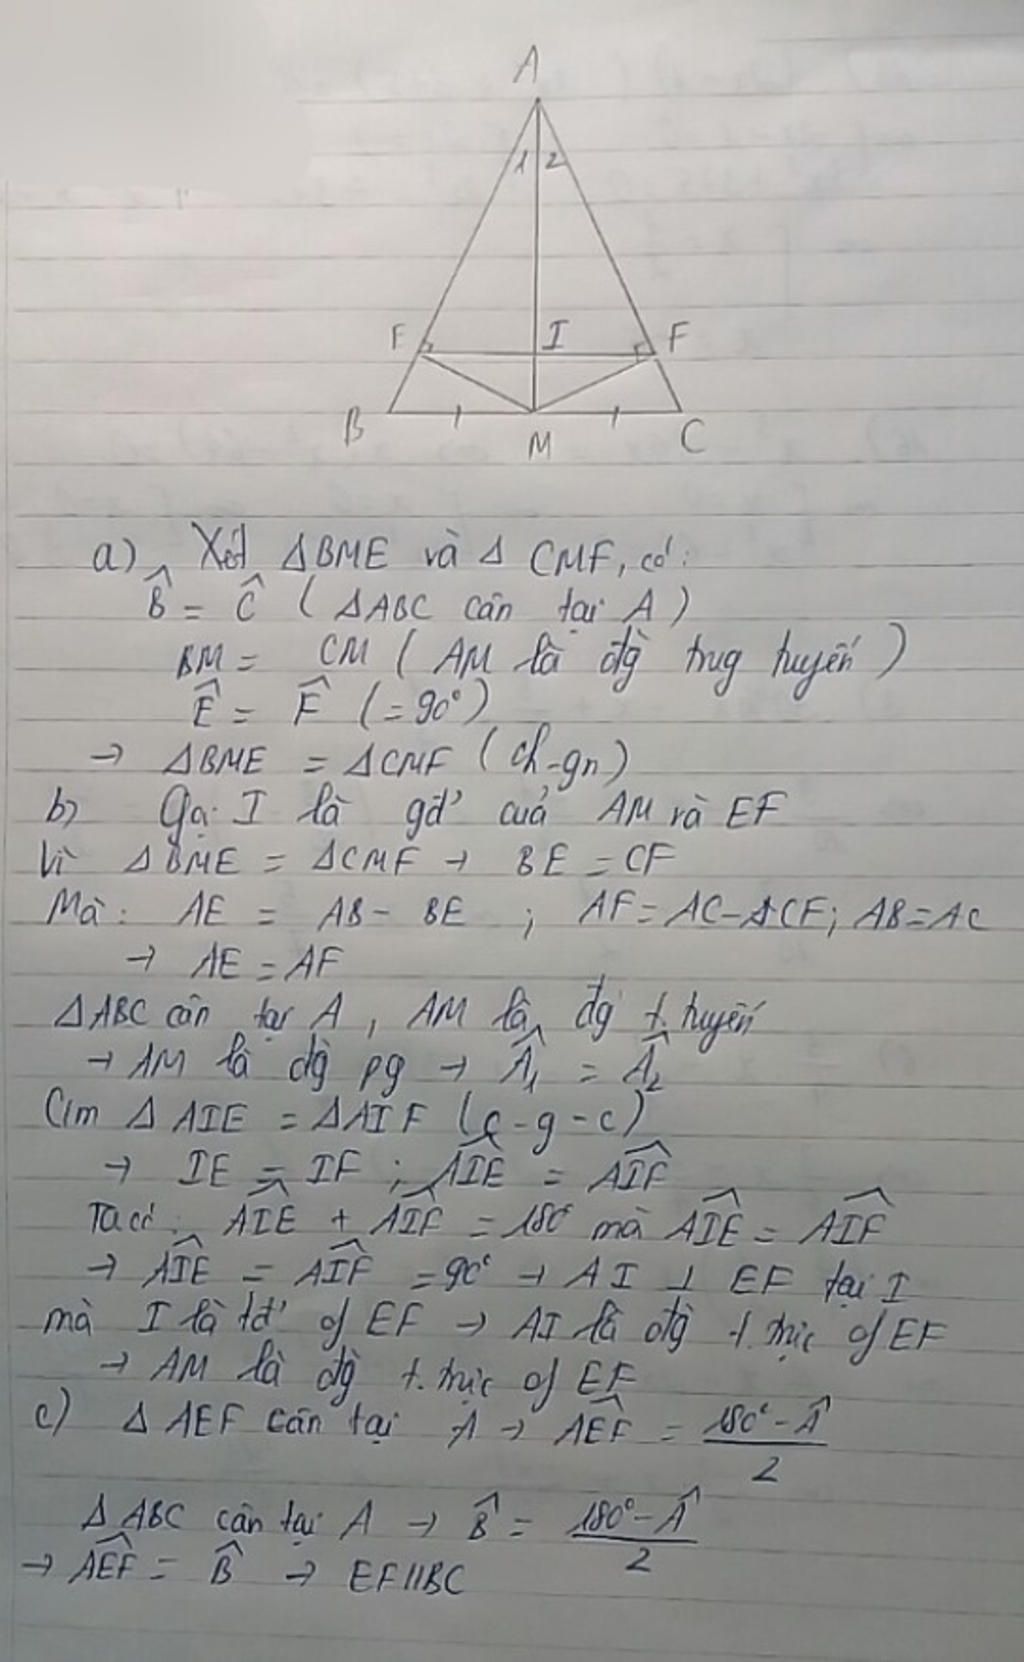 A
1 2
F I F
B M C
a) Xét ΔBME và Δ CMF, có:
B̂ = Ĉ ( ΔABC cân tại A )
BM = CM ( AM là đg̀ trug tuyến )
Ê = F̂ (= 90°)
→ ΔBME = ΔCMF ( ch-gn )
b) Gọi I là gđ' cuả AM và EF
Vì ΔBME = ΔCMF → BE = CF
Mà: AE = AB - BE ; AF = AC - CF; AB = AC
→ AE = AF
ΔABC cân tại A, AM là đg̀ t. tuyến
→ AM là đg̀ pg → Â₁ = Â₂
C/m ΔAIE = ΔAIF (c-g-c)
→ IE = IF ; AIE^ = AIF^
Ta có: AIE^ + AIF^ = 180° mà AIE^ = AIF^
→ AIE^ = AIF^ = 90° → AI ⊥ EF tại I
mà I là tđ' of EF → AI là đg̀ t. trực of EF
→ AM là đg̀ t. trực of EF
c) ΔAEF cân tại A → AEF^ = (180° - Â)/2
ΔABC cân tại A → B̂ = (180° - Â)/2
→ AEF^ = B̂ → EF//BC